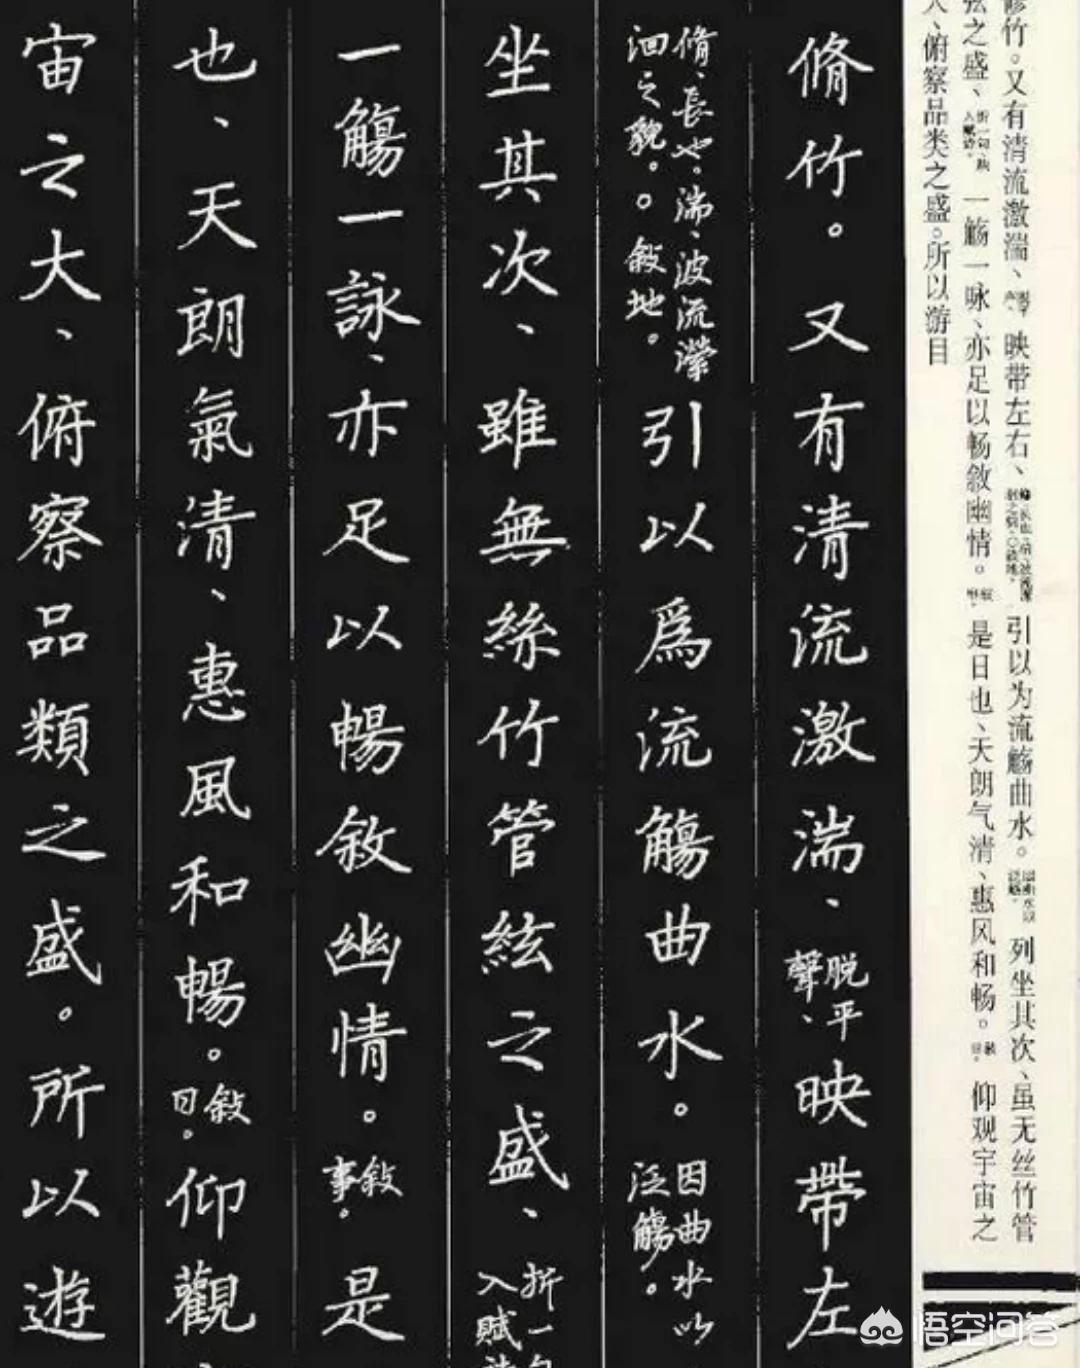 修竹。又有清流激湍、 映带左右、 引以为流觞曲水。 列坐其次、虽无丝竹管
弦之盛、 一觞一咏、亦足以畅敘幽情。 是日也、天朗气清、惠风和畅。 仰观宇宙之
大、俯察品类之盛。所以游目
脩竹。又有清流激湍、脱平聲、映帶左
脩、長也。湍、波流瀠洄之貌。。敍地。引以爲流觴曲水。因曲水以泛觴。
坐其次、雖無絲竹管絃之盛、折一句入賦
一觴一詠、亦足以暢敘幽情。敍事。是
也、天朗氣清、惠風和暢。敍日。仰觀
宙之大、俯察品類之盛。所以遊
悟空问答